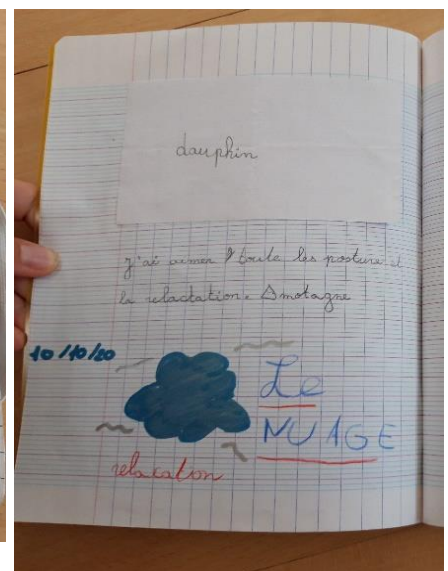 dauphin
j'ai aimer toute les posture et
la relactation. motagne
10/10/20
Le
NUAGE
relacation